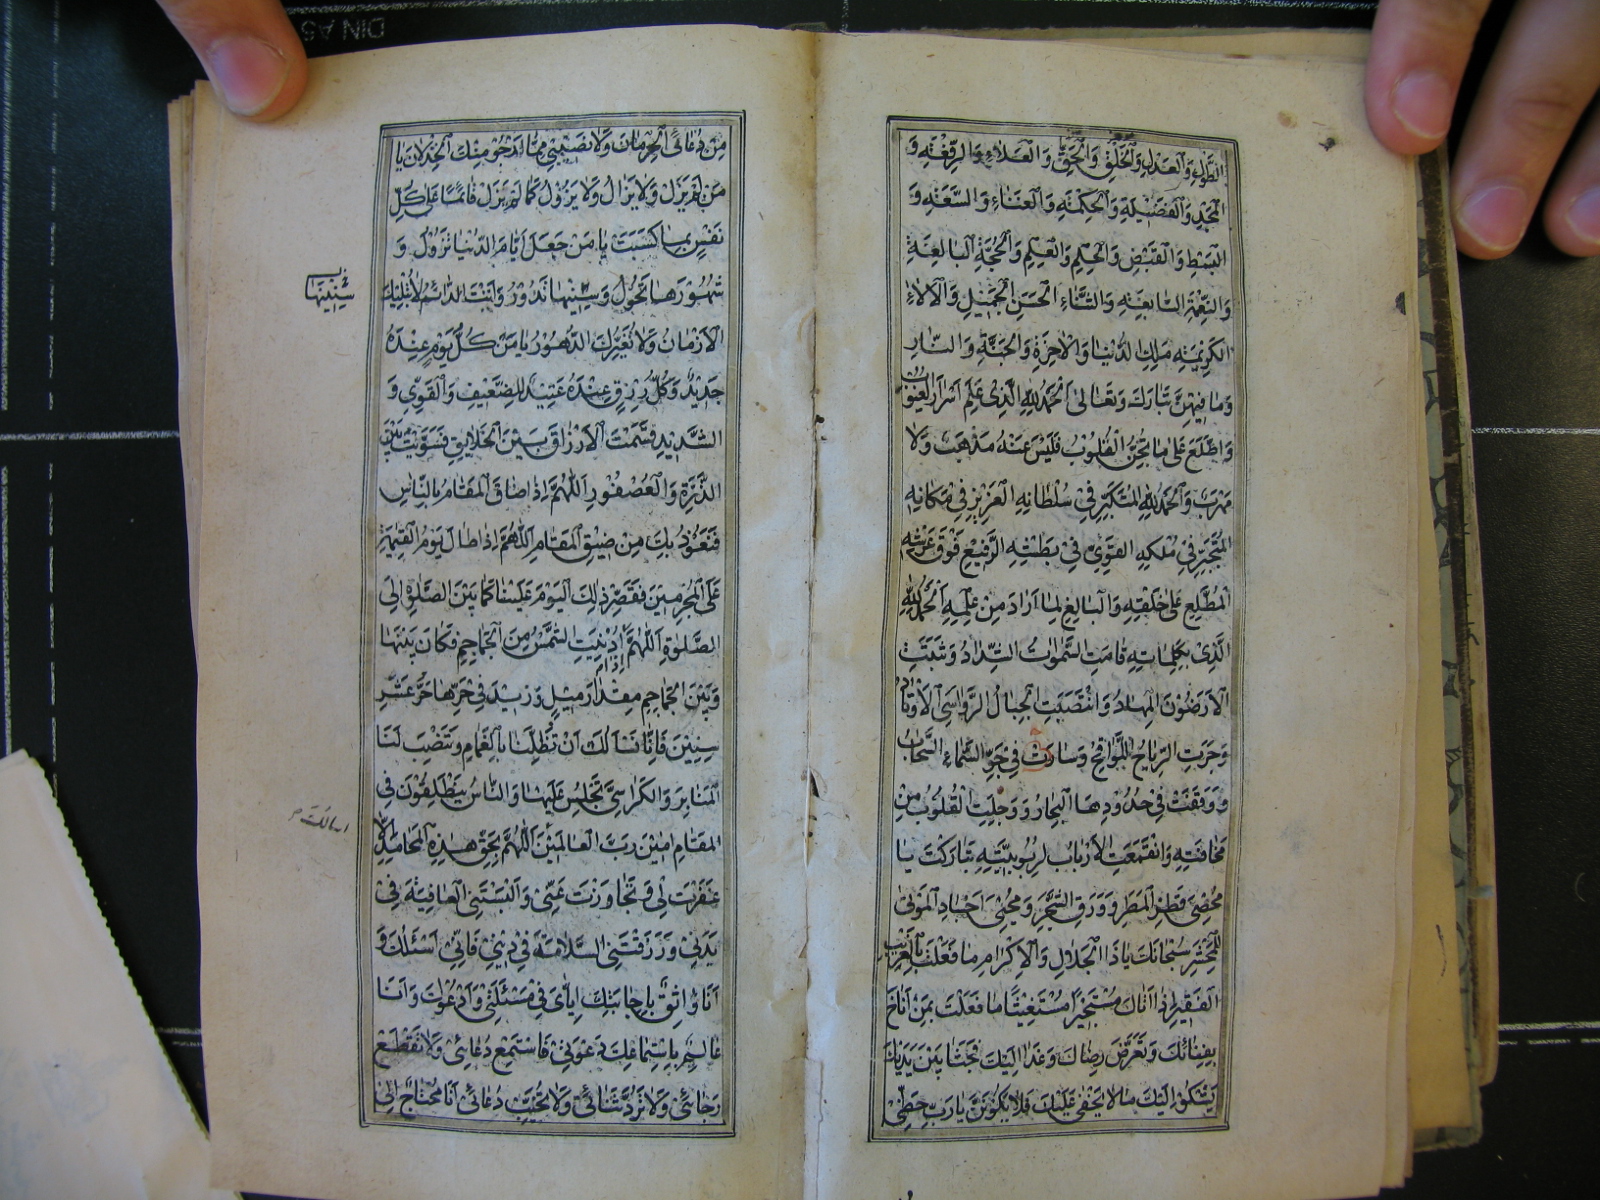 الطَّوْلِ وَالْعَدْلِ وَالْخَلْقِ وَالْحَقِّ وَالْعَلَاءِ وَالرِّفْعَةِ وَ
الْمَجْدِ وَالْفَضِيلَةِ وَالْحِكْمَةِ وَالْغَنَاءِ وَالسَّعَةِ وَ
الْبَسْطِ وَالْقَبْضِ وَالْحِلْمِ وَالْعِلْمِ وَالْحُجَّةِ الْبَالِغَةِ
وَالنِّعْمَةِ السَّابِغَةِ وَالثَّنَاءِ الْحَسَنِ الْجَمِيلِ وَالْآلَاءِ
الْكَرِيمَةِ مَلِكِ الدُّنْيَا وَالْآخِرَةِ وَالْجَنَّةِ وَالنَّارِ
وَمَا فِيهِنَّ تَبَارَكَ وَتَعَالَى اَلْحَمْدُ لِلَّهِ الَّذِي عَلِمَ اَسْرَارَ الْغُيُوبِ
وَاطَّلَعَ عَلَى مَا تُجِنُّ الْقُلُوبُ فَلَيْسَ عَنْهُ مَذْهَبٌ وَلَا
مَهْرَبٌ وَالْحَمْدُ لِلَّهِ الْمُتَكَبِّرِ فِي سُلْطَانِهِ الْعَزِيزِ فِي مَكَانِهِ
الْمُتَجَبِّرِ فِي مُلْكِهِ الْقَوِيِّ فِي بَطْشِهِ الرَّفِيعِ فَوْقَ عَرْشِهِ
الْمُطَّلِعِ عَلَى خَلْقِهِ وَالْبَالِغِ لِمَا اَرَادَ مِنْ عِلْمِهِ اَلْحَمْدُ لِلَّهِ
الَّذِي بِكَلِمَاتِهِ قَامَتِ السَّمَوَاتُ الشِّدَادُ وَثَبَتَتِ
الْاَرَضُونَ الْمِهَادُ وَانْتَصَبَتِ الْجِبَالُ الرَّوَاسِي الْاَوْتَادُ
وَجَرَتِ الرِّيَاحُ اللَّوَاقِحُ وَسَارَتْ فِي جَوِّ السَّمَاءِ السَّحَابُ
وَوَقَفَتْ فِي حُدُودِهَا الْبِحَارُ وَوَجِلَتِ الْقُلُوبُ مِنْ
مَخَافَتِهِ وَانْقَمَعَتِ الْاَرْبَابُ لِرُبُوبِيَّتِهِ تَبَارَكْتَ يَا
مُحْصِيَ قَطْرِ الْمَطَرِ وَوَرَقِ الشَّجَرِ وَمُحْيِيَ اَجْسَادِ الْمَوْتَى
لِلْحَشْرِ سُبْحَانَكَ يَا ذَا الْجَلَالِ وَالْاِكْرَامِ مَا فَعَلْتَ بِالْغَرِيبِ
الْفَقِيرِ اِذَا اَتَاكَ مُسْتَجِيرًا مُسْتَغِيثًا مَا فَعَلْتَ بِمَنْ اَنَاخَ
بِفِنَائِكَ وَتَعَرَّضَ رِضَاكَ وَغَدَا اِلَيْكَ فَجَثَا بَيْنَ يَدَيْكَ
يَشْكُو اِلَيْكَ مَا لَا يَخْفَى عَلَيْكَ فَلَا يَكُونَنَّ يَا رَبِّ حَظِّي
مِنْ دُعَائِيَ الْحِرْمَانَ وَلَا نَصِيبِي مِمَّا اَرْجُو مِنْكَ الْخِذْلَانَ يَا
مَنْ لَمْ يَزَلْ وَلَا يَزَالُ وَلَا يَزُولُ كَمَا لَمْ يَزَلْ قَائِمًا عَلَى كُلِّ
نَفْسٍ بِمَا كَسَبَتْ يَا مَنْ جَعَلَ اَيَّامَ الدُّنْيَا تَزُولُ وَ
شُهُورَهَا تَحُولُ وَسِنِيهَا تَدُورُ وَاَنْتَ الدَّائِمُ لَا تُبْلِيكَ
الْاَزْمَانُ وَلَا تُغَيِّرُكَ الدُّهُورُ يَا مَنْ كُلُّ يَوْمٍ عِنْدَهُ
جَدِيدٌ وَكُلُّ رِزْقٍ عِنْدَهُ عَتِيدٌ لِلضَّعِيفِ وَالْقَوِيِّ وَ
الشَّدِيدِ قَسَّمْتَ الْاَرْزَاقَ بَيْنَ الْخَلَائِقِ فَسَوَّيْتَ بَيْنَ
الذَّرَّةِ وَالْعُصْفُورِ اَللَّهُمَّ اِذَا ضَاقَ الْمَقَامُ بِالنَّاسِ
فَنَعُوذُ بِكَ مِنْ ضِيقِ الْمَقَامِ اَللَّهُمَّ اِذَا طَالَ يَوْمُ الْقِيٰمَةِ
عَلَى الْمُجْرِمِينَ فَقَصِّرْ ذَلِكَ الْيَوْمَ عَلَيْنَا كَمَا بَيْنَ الصَّلٰوةِ اِلَى
الصَّلٰوةِ اَللَّهُمَّ اِذَا اُدْنِيَتِ الشَّمْسُ مِنَ الْجَمَاجِمِ فَكَانَ بَيْنَهَا
وَبَيْنَ الْجَمَاجِمِ مِقْدَارُ مِيلٍ وَزِيدَ فِي حَرِّهَا حَرُّ عَشْرِ
سِنِينَ فَاِنَّا نَسْاَلُكَ اَنْ تُظِلَّنَا بِالْغَمَامِ وَتَنْصِبَ لَنَا
الْمَنَابِرَ وَالْكَرَاسِيَّ نَجْلِسُ عَلَيْهَا وَالنَّاسُ يَنْطَلِقُونَ فِي
الْمَقَامِ اٰمِينَ رَبَّ الْعَالَمِينَ اَللَّهُمَّ بِحَقِّ هٰذِهِ الْمَحَامِدِ اِلَّا
غَفَرْتَ لِي وَتَجَاوَزْتَ عَنِّي وَاَلْبَسْتَنِي الْعَافِيَةَ فِي
بَدَنِي وَرَزَقْتَنِي السَّلَامَةَ فِي دِينِي فَاِنِّي اَسْئَلُكَ وَ
اَنَا وَاثِقٌ بِاِجَابَتِكَ اِيَّايَ فِي مَسْئَلَتِي وَاَدْعُوكَ وَاَنَا
عَالِمٌ بِاسْتِمَاعِكَ دَعْوَتِي فَاسْتَمِعْ دُعَائِي وَلَا تَقْطَعْ
رَجَائِي وَلَا تَرُدَّ ثَنَائِي وَلَا تُخَيِّبْ دُعَائِي اَنَا مُحْتَاجٌ اِلَى
DIN A5